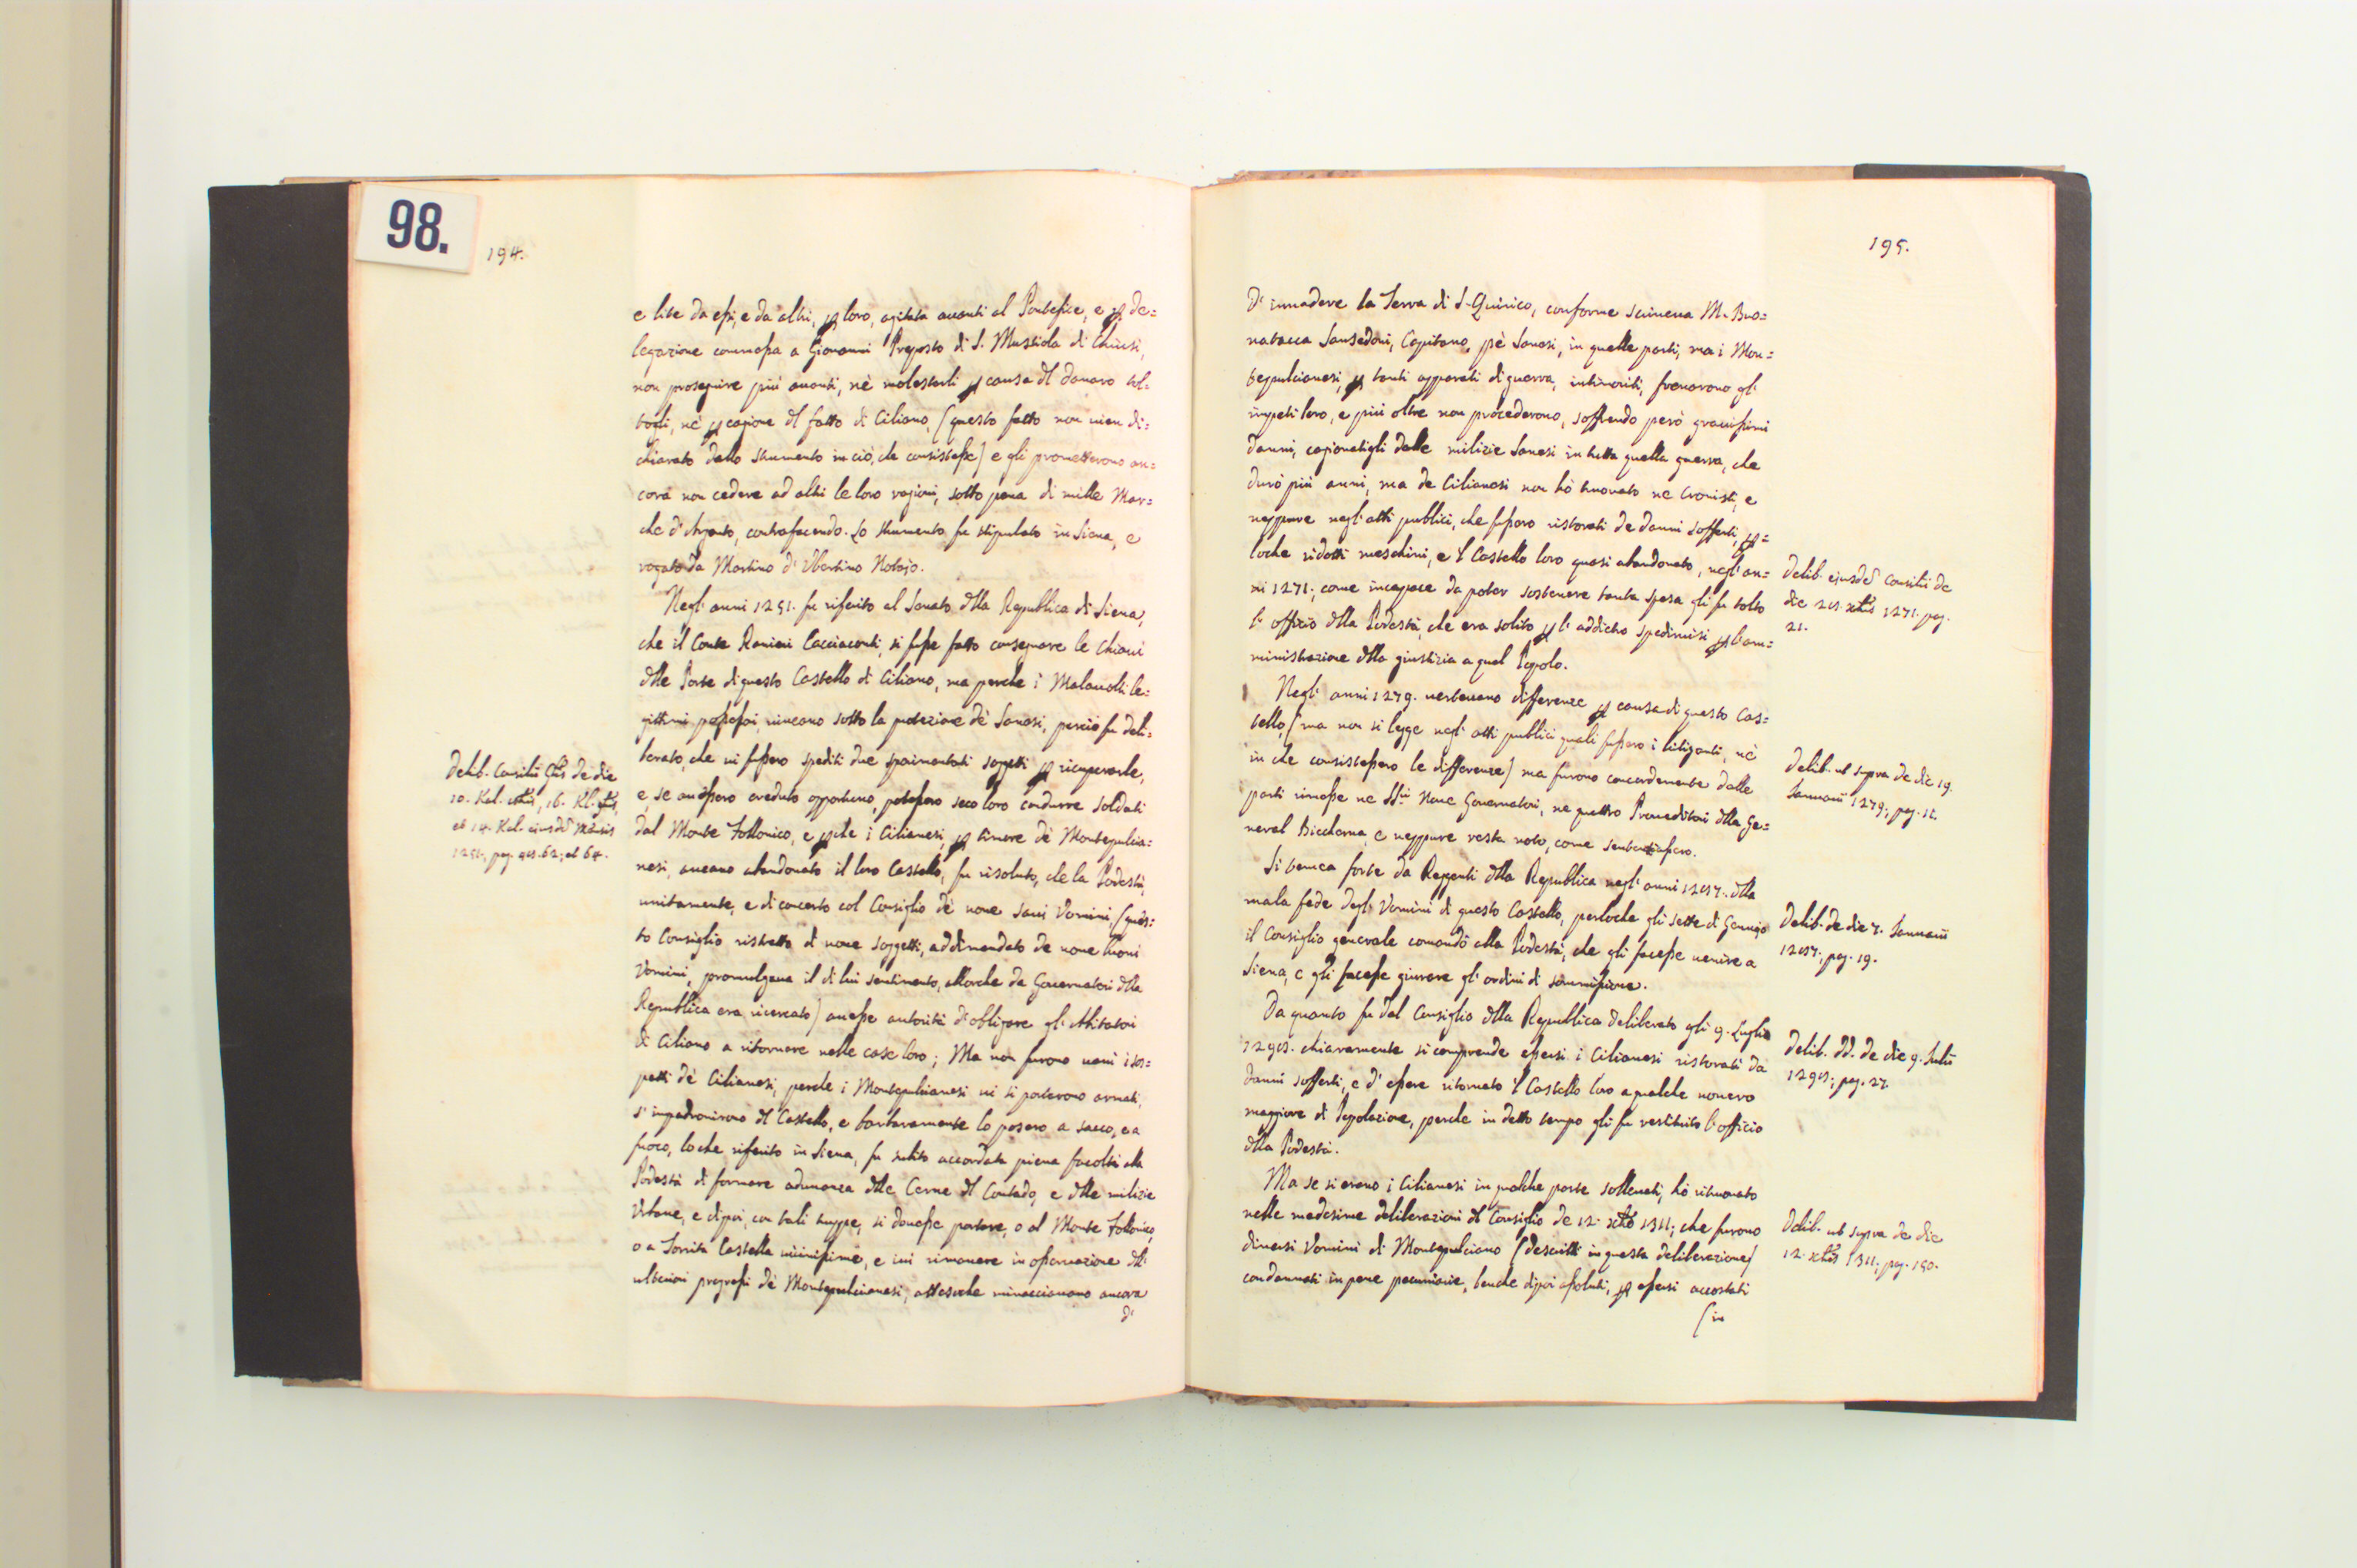 98.
194.
e lite da essi, e da altri, per loro, agitata auanti al Pontefice, e per de=
legazione commessa a Giouanni Preposto di S. Mustiola di Chiusi,
non proseguire più auanti, nè molestarli per causa del danaro tol=
togli, nè per cagione del fatto di Ciliano, (questo fatto non uien di=
chiarato dallo strumento in ciò, che consistesse) e gli promettevano an=
cora non cedere ad altri le loro ragioni, sotto pena di mille Mar=
che d'Argento, contrafacendo. Lo strumento fu stipulato in Siena, e
rogato da Martino d'Ubertino Notajo.
Negl'anni 1251. fu riferito al Senato della Republica di Siena,
che il Conte Ranieri Cacciaconti, si fusse fatto consegnare le chiaui
delle Porte di questo Castello di Ciliano, ma perche i Malauolti le=
gittimi possessori, uiueano sotto la protezione de' Sanesi, perciò fu deli=
berato, che ui fussero spediti due sperimentati soggetti per ricuperarle,
e se auessero creduto opportuno, potessero seco loro condurre soldati
dal Monte Follonico, e perche i Cilianesi, per timore de' Montepulcia=
nesi, aueano abandonato il loro Castello, fu risoluto, che la Podestà,
unitamente, e di concerto col Consiglio de' noue saui Vomini, (ques=
to Consiglio ristretto di noue soggetti, addimandato de noue buoni
Vomini, promulgaua il di lui sentimento, allorche da Gouernatori della
Republica era ricercato) auesse autorità di obligare gl'Abitatori
di Ciliano a ritornare nelle case loro; Ma non furono uani i sos=
petti de' Cilianesi, perche i Montepulcianesi ui si portarono armati,
s'impadronirono del Castello, e barbaramente lo posero a sacco, e a
fuoco, loche riferito in Siena, fu subito accordata piena facoltà alla
Podestà di formare adunanza delle Cerne del Contado, e delle milizie
Urbane, e dipoi, con tali truppe, si douesse portare, o al Monte Follonico,
o a Torrita Castella uicinissime, e iui rimanere in osseruazione dell'
ulteriori progressi de' Montepulcianesi, attesoche minacciauano ancora
d'
Delib. Consilii Gnlis de die
10. Kal. 16. Kl.
et 14. Kal. eiusdē mensis
1251. pag. 62; et 64.
195.
d'inuadere la Terra di S. Quirico, conforme scriueua M. Buo=
natacca Sansedoni, Capitano, pè Sanesi, in quelle parti, ma i Mon=
tepulcianesi, per tanti apparati di guerra, intimoriti, frenarono gl'
impeti loro, e più oltre non procederono, soffrendo però grauissimi
danni, cagionatigli dalle milizie Sanesi in tutta quella guerra, che
durò più anni, ma de Cilianesi non hò trouato ne Cronisti, e
neppure negl'atti publici, che fussero ristorati de danni sofferti, per=
loche ridotti meschini, e 'l Castello loro quasi abandonato, negl'an=
ni 1271; come incapace da poter sostenere tanta spesa gli fu tolto
l'offizio della Podestà, che era solito per l'addietro spediruisi per l'am=
ministrazione della giustizia a quel Popolo.
Negl'anni 1279. uerteuano differenze per causa di questo Cas=
tello, (ma non si legge negl'atti publici quali fussero i litiganti, nè
in che consistessero le differenze) ma furono concordemente dalle
parti rimesse ne SS.ri Noue Gouernatori, ne quattro Proueditori della Ge=
neral Biccherna, e neppure resta noto, come sentenziassero.
Si temea forte da Reggenti della Republica negl'anni 1287. della
mala fede degl'Vomini di questo Castello, perloche gli sette di Gennajo
il Consiglio generale comandò alla Podestà, che gli facesse uenire a
Siena, e gli facesse giurare gl'ordini di sommissione.
Da quanto fu dal Consiglio della Republica deliberato gli 9. Luglio
1298. chiaramente si comprende essersi i Cilianesi ristorati da
danni sofferti, e d'essere ritornato 'l Castello loro a qualche nouero
maggiore di Popolazione, perche in detto tempo gli fu restituito l'officio
della Podestà.
Ma se si erano i Cilianesi in qualche parte solleuati, hò ritrouato
nelle medesime deliberazioni del Consiglio de 12. xbre 1311; che furono
diuersi Vomini di Montepulciano (descritti in questa deliberazione)
condannati in pene pecuniarie, benche dipoi assoluti, per essersi accostati
(in
Delib. eiusdē Consilii de
die 28. xbris 1271. pag.
21.
Delib. ut supra de die 19.
Januarii 1279; pag. 12.
Delib. de die 7. Januarii
1287; pag. 19.
Delib. dd. de die 9. Julii
1298; pag. 27.
Delib. ut supra de die
12. xbris 1311; pag. 190.